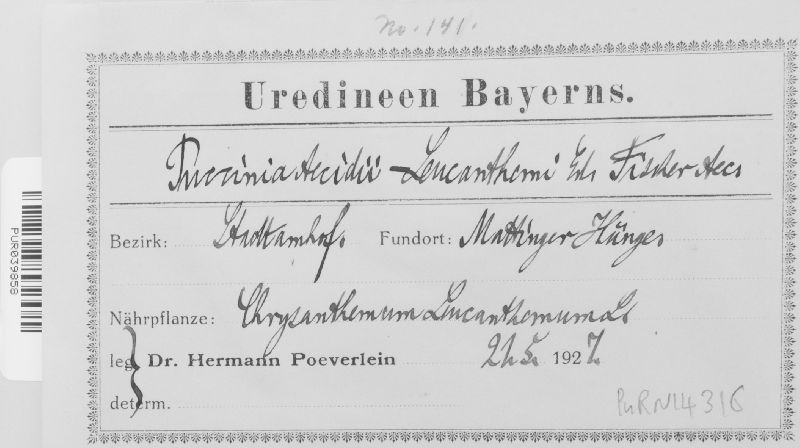 No. 141.
Uredineen Bayerns.
Puccinia Aecidii-Leucanthemi Ed. Fischer Aec.
Bezirk: Stadtamhof. Fundort: Mattinger Hänge.
Nährpflanze: Chrysanthemum Leucanthemum L.
leg. Dr. Hermann Poeverlein 21. 5. 1927.
determ.
PUR N14316
PUR039858